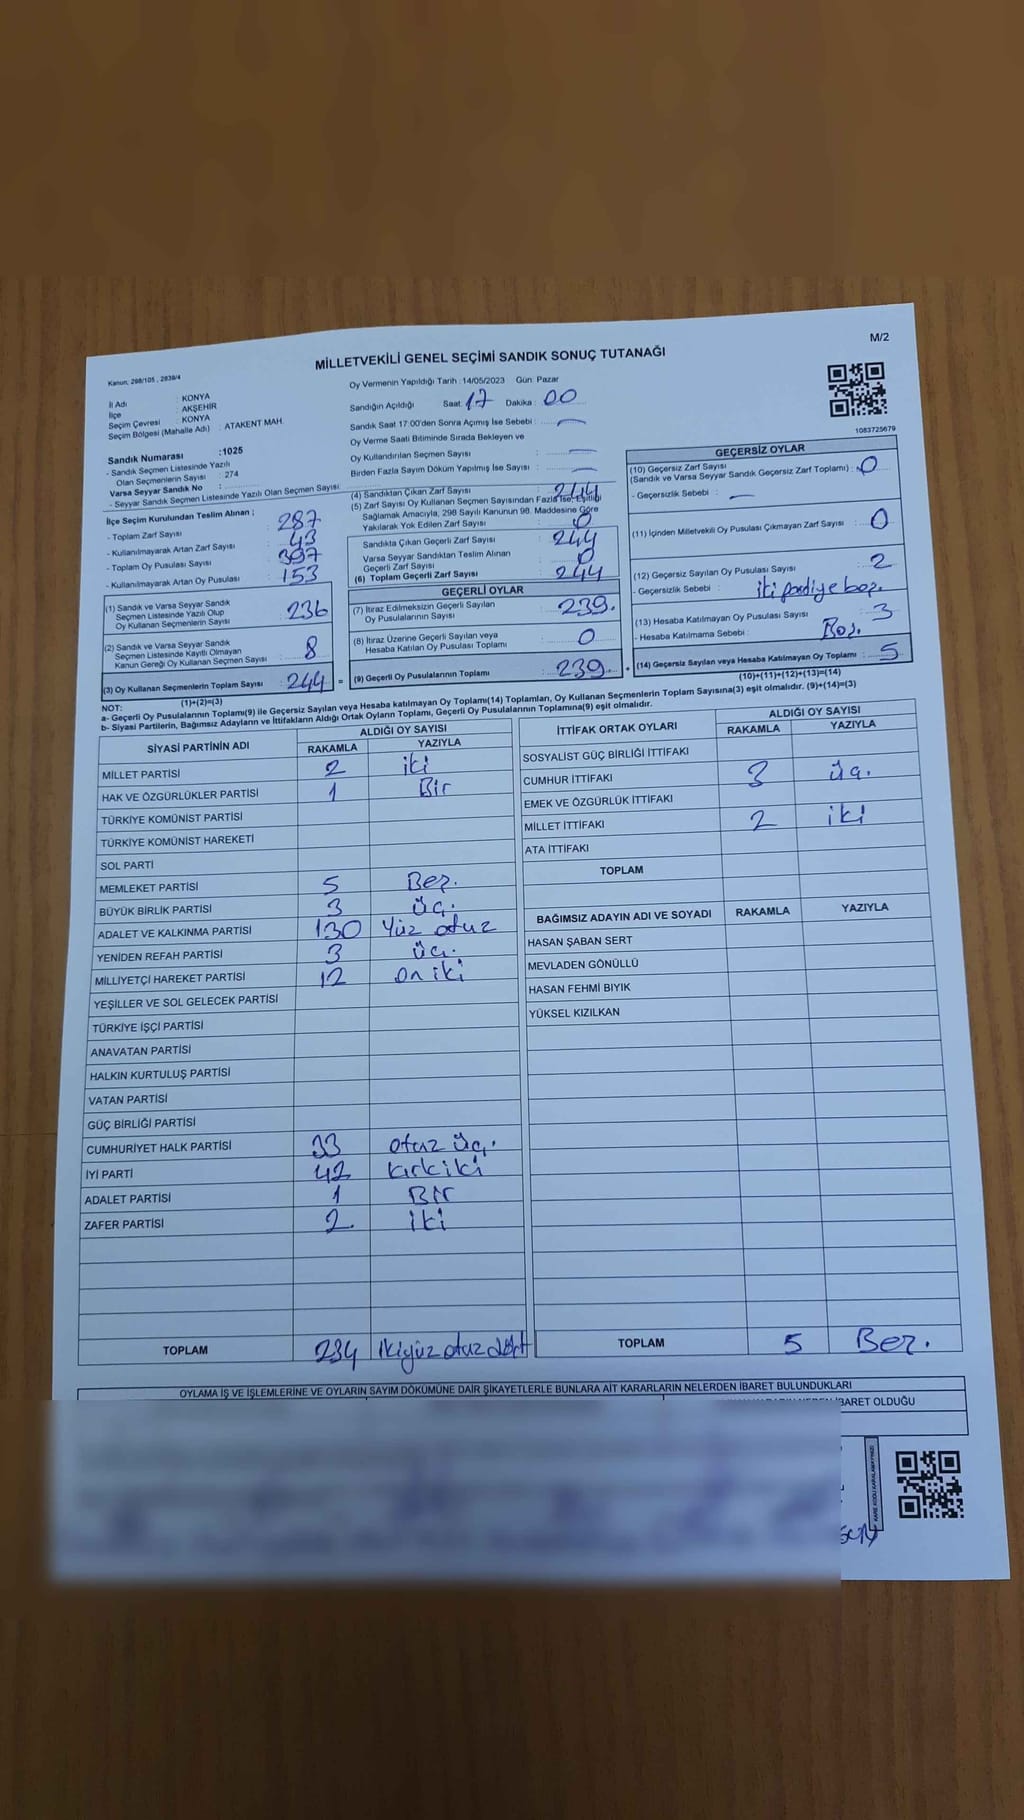 M/2
MİLLETVEKİLİ GENEL SEÇİMİ SANDIK SONUÇ TUTANAĞI
Kanun; 298/105 , 2839/4
İl Adı : KONYA
İlçe : AKŞEHİR
Seçim Çevresi : KONYA
Seçim Bölgesi (Mahalle Adı) : ATAKENT MAH.
Sandık Numarası :1025
- Sandık Seçmen Listesinde Yazılı
Olan Seçmenlerin Sayısı : 274
Varsa Seyyar Sandık No :
- Seyyar Sandık Seçmen Listesinde Yazılı Olan Seçmen Sayısı:
İlçe Seçim Kurulundan Teslim Alınan ;
- Toplam Zarf Sayısı : 287
- Kullanılmayarak Artan Zarf Sayısı : 43
- Toplam Oy Pusulası : 397
- Kullanılmayarak Artan Oy Pusulası : 153
(1) Sandık ve Varsa Seyyar Sandık
Seçmen Listesinde Yazılı Olup
Oy Kullanan Seçmenlerin Sayısı : 236
(2) Sandık ve Varsa Seyyar Sandık
Seçmen Listesinde Kayıtlı Olmayan
Kanun Gereği Oy Kullanan Seçmen Sayısı : 8
(3) Oy Kullanan Seçmenlerin Toplam Sayısı : 244 =
(1)+(2)=(3)
Oy Vermenin Yapıldığı Tarih : 14/05/2023 Gün: Pazar
Sandığın Açıldığı Saat: 17 Dakika : 00
Sandık Saat 17:00'den Sonra Açımış İse Sebebi : —
Oy Verme Saati Bitiminde Sırada Bekleyen ve
Oy Kullandırılan Seçmen Sayısı : —
Birden Fazla Sayım Döküm Yapılmış İse Sayısı : —
(4) Sandıktan Çıkan Zarf Sayısı : 244
(5) Zarf Sayısı Oy Kullanan Seçmen Sayısından Fazla İse, Eşitliği
Sağlamak Amacıyla, 298 Sayılı Kanunun 98. Maddesine Göre
Yakılarak Yok Edilen Zarf Sayısı : 0
Sandıkta Çıkan Geçerli Zarf Sayısı : 244
Varsa Seyyar Sandıktan Teslim Alınan
Geçerli Zarf Sayısı : 0
(6) Toplam Geçerli Zarf Sayısı : 244
GEÇERLİ OYLAR
(7) İtiraz Edilmeksizin Geçerli Sayılan
Oy Pusulalarının Sayısı : 239.
(8) İtiraz Üzerine Geçerli Sayılan veya
Hesaba Katılan Oy Pusulası Toplamı : 0
(9) Geçerli Oy Pusulalarının Toplamı : 239. +
1083725679
GEÇERSİZ OYLAR
(10) Geçersiz Zarf Sayısı
(Sandık ve Varsa Seyyar Sandık Geçersiz Zarf Toplamı) : 0
- Geçersizlik Sebebi : —
(11) İçinden Milletvekili Oy Pusulası Çıkmayan Zarf Sayısı : 0
(12) Geçersiz Sayılan Oy Pusulası Sayısı : 2
- Geçersizlik Sebebi : iki
(13) Hesaba Katılmayan Oy Pusulası Sayısı : 3
- Hesaba Katılmama Sebebi : Boş.
(14) Geçersiz Sayılan veya Hesaba Katılmayan Oy Toplamı : 5
(10)+(11)+(12)+(13)=(14)
NOT:
a- Geçerli Oy Pusulalarının Toplamı(9) ile Geçersiz Sayılan veya Hesaba katılmayan Oy Toplamı(14) Toplamları, Oy Kullanan Seçmenlerin Toplam Sayısına(3) eşit olmalıdır. (9)+(14)=(3)
b- Siyasi Partilerin, Bağımsız Adayların ve İttifakların Aldığı Ortak Oyların Toplamı, Geçerli Oy Pusulalarının Toplamına(9) eşit olmalıdır.
SİYASİ PARTİNİN ADI ALDIĞI OY SAYISI
RAKAMLA YAZIYLA
MİLLET PARTİSİ 2 iki
HAK VE ÖZGÜRLÜKLER PARTİSİ 1 Bir
TÜRKİYE KOMÜNİST PARTİSİ
TÜRKİYE KOMÜNİST HAREKETİ
SOL PARTİ
MEMLEKET PARTİSİ 5 Beş.
BÜYÜK BİRLİK PARTİSİ 3 üç.
ADALET VE KALKINMA PARTİSİ 130 Yüz otuz
YENİDEN REFAH PARTİSİ 3 üç.
MİLLİYETÇİ HAREKET PARTİSİ 12 on iki
YEŞİLLER VE SOL GELECEK PARTİSİ
TÜRKİYE İŞÇİ PARTİSİ
ANAVATAN PARTİSİ
HALKIN KURTULUŞ PARTİSİ
VATAN PARTİSİ
GÜÇ BİRLİĞİ PARTİSİ
CUMHURİYET HALK PARTİSİ 33 otuz üç.
İYİ PARTİ 42 kırk iki
ADALET PARTİSİ 1 Bir
ZAFER PARTİSİ 2. iki
TOPLAM 234 ikiyüz otuz dört
İTTİFAK ORTAK OYLARI ALDIĞI OY SAYISI
RAKAMLA YAZIYLA
SOSYALİST GÜÇ BİRLİĞİ İTTİFAKI
CUMHUR İTTİFAKI 3 üç.
EMEK VE ÖZGÜRLÜK İTTİFAKI
MİLLET İTTİFAKI 2 iki
ATA İTTİFAKI
TOPLAM
BAĞIMSIZ ADAYIN ADI VE SOYADI RAKAMLA YAZIYLA
HASAN ŞABAN SERT
MEVLADEN GÖNÜLLÜ
HASAN FEHMİ BIYIK
YÜKSEL KIZILKAN
TOPLAM 5 Beş.
OYLAMA İŞ VE İŞLEMLERİNE VE OYLARIN SAYIM DÖKÜMÜNE DAİR ŞİKAYETLERLE BUNLARA AİT KARARLARIN NELERDEN İBARET BULUNDUKLARI
İBARET OLDUĞU
KARE KODU KARALAMAYINIZ!